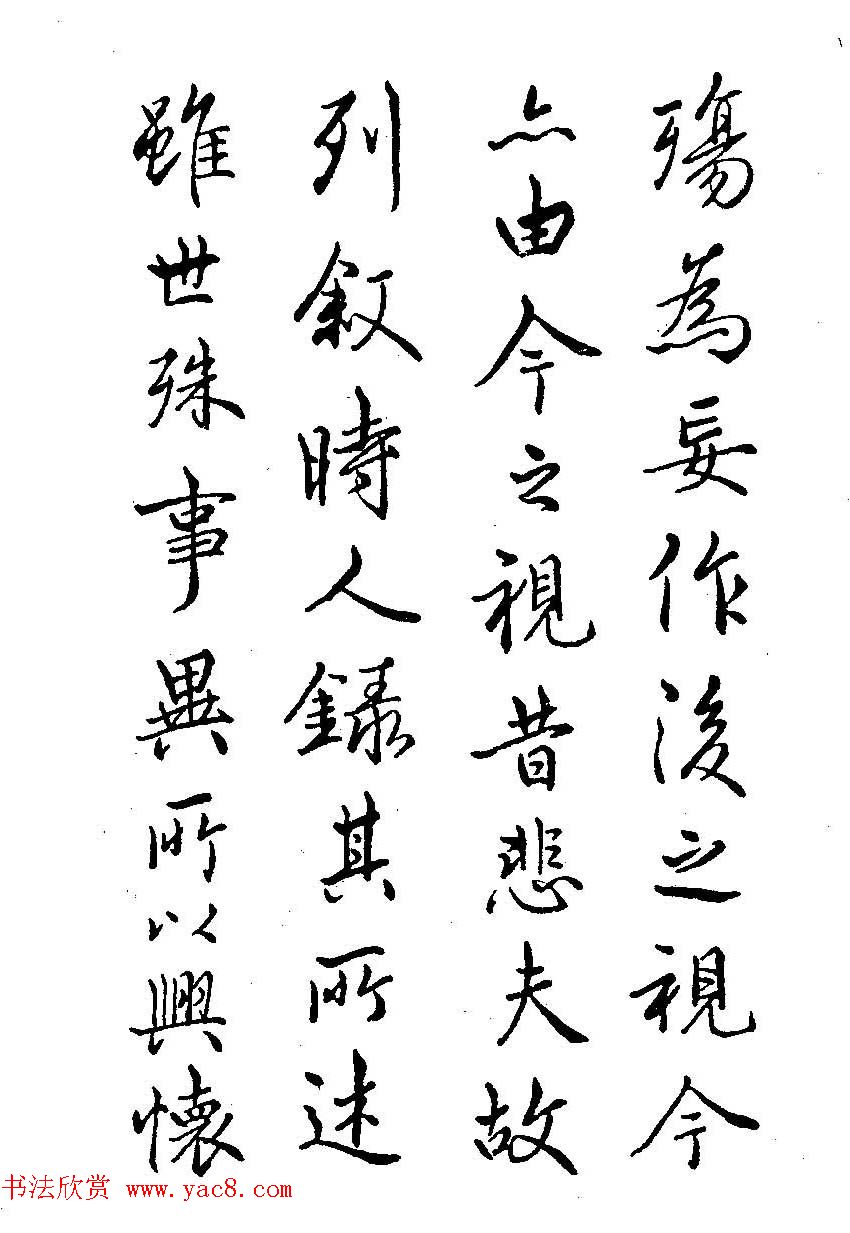 殤為妄作後之視今
亦由今之視昔悲夫故
列敘時人錄其所述
雖世殊事異所以興懷
书法欣赏 www.yac8.com